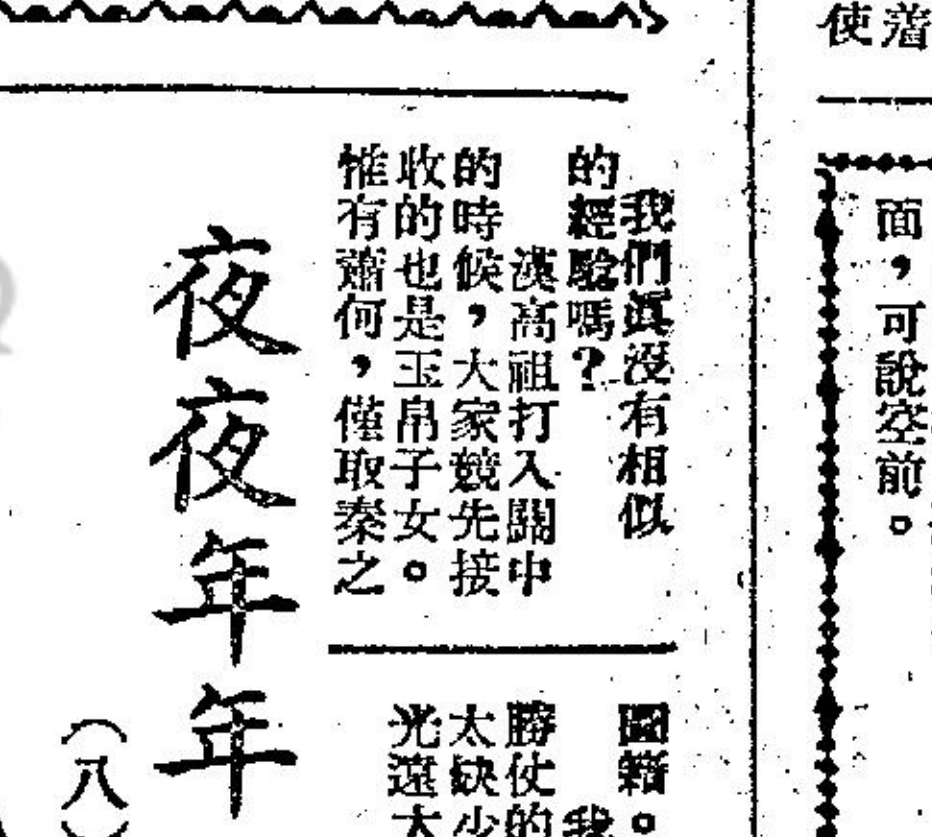 使
面，可說空前。
我們眞沒有相似
的經驗嗎？
漢高祖打入關中
的時候，大家競先接
收的也是玉帛子女。
惟有蕭何，僅取秦之
圖籍。
我
勝仗的
太缺少
光遠大
夜夜年年
（八）